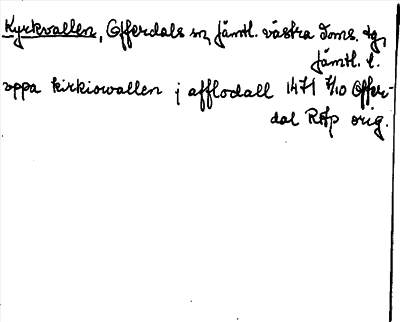 Kyrkvallen, Offerdals sn, Jämtl. västra doms. tg,
Jämtl. l.
oppa kirkiowallen j afflodall 1471 7/10 Offer-
dal RAp orig.